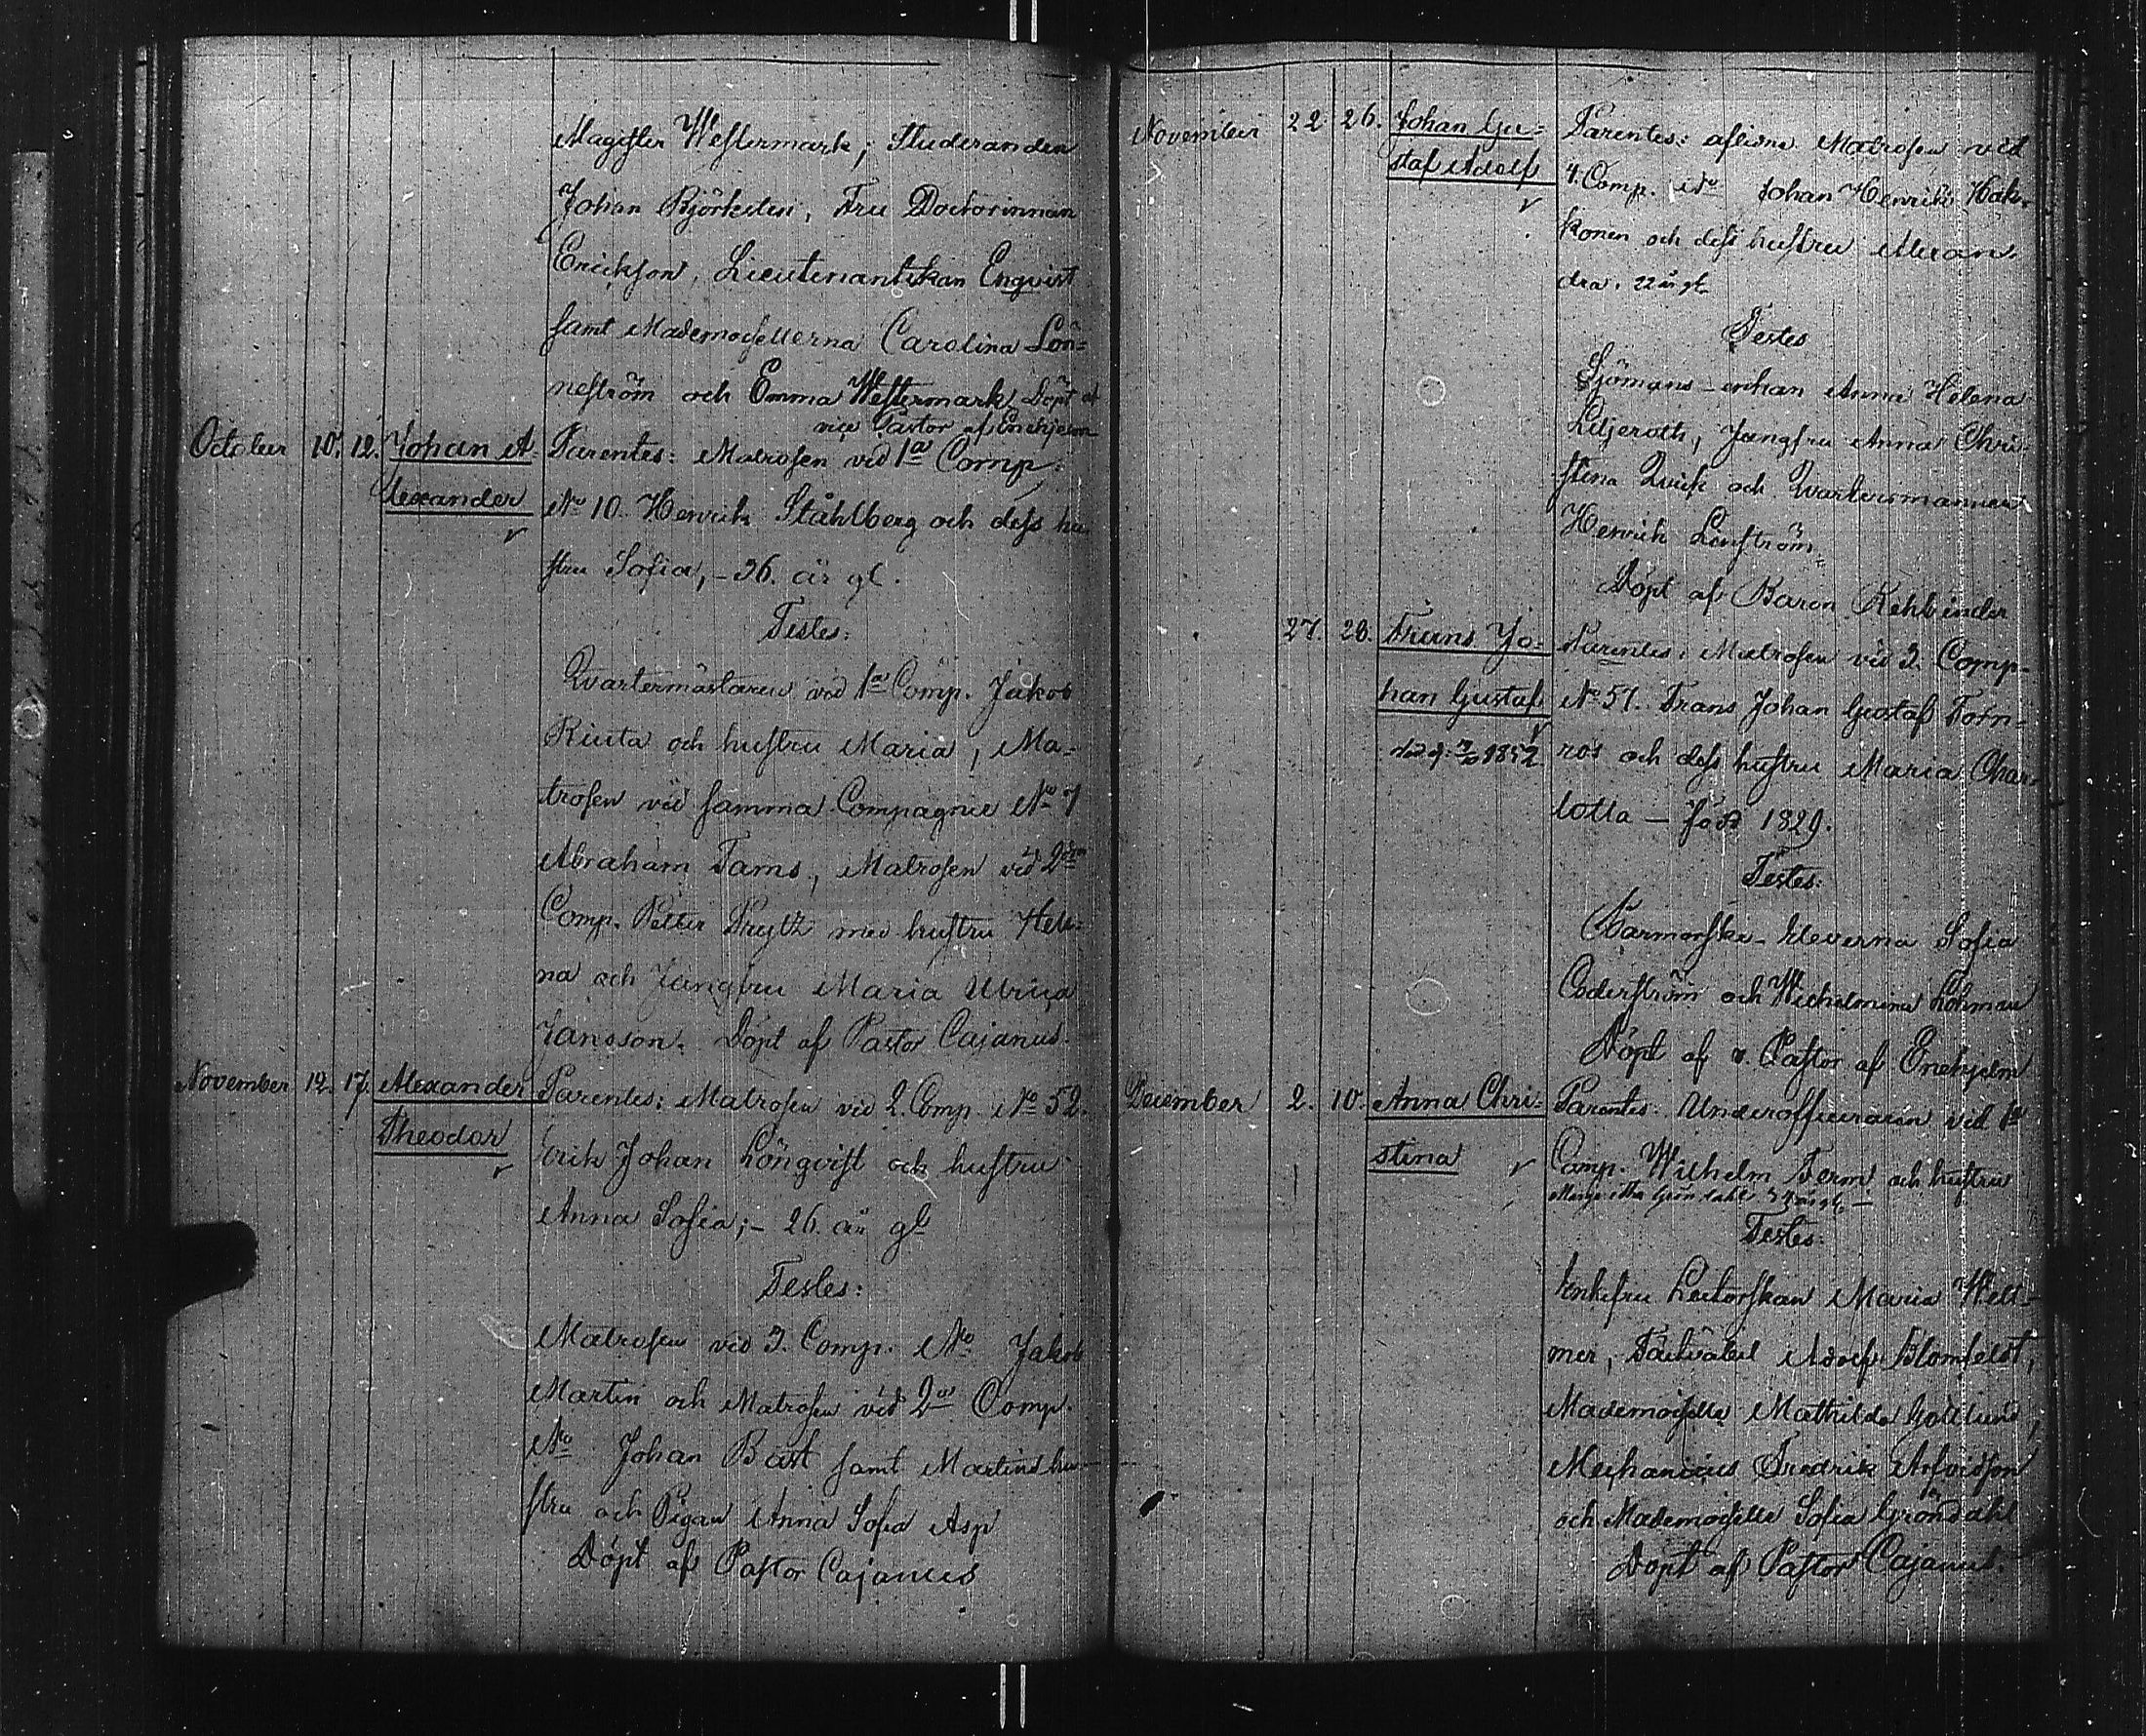 Magister Westermark, Studeranden
Johan Björkstén, Fru Doctorinnan
Erickson, Lieutenantskan Enqvist
samt Mademoisellerna Carolina Lön=
neström och Emma Westermark, Döpt af
vice Pastor af Enehjelm
October 10. 12. Johan A= Parentes: Matrosen vid 1a Comp:
lexander No 10 Henrik Ståhlberg och dess hu
stru Sofia, – 36. år gl.
Testes:
Qvartermästaren vid 1a Comp. Jakob
Riuta och hustru Maria, Ma=
trosen vid samma Compagnie No 7
Abraham Tams, Matrosen vid 2dra
Comp. Petter med hustru Hele=
na och Jungfru Maria Ulrica
Jansson. Döpt af Pastor Cajanus.
November 12. 17. Alexander Parentes: Matrosen vid 2. Comp. No 52.
Theodor Erik Johan Lönqvist och hustru
Anna Sofia; – 26. år gl
Testes:
Matrosen vid 3. Comp. No Jakob
Martin och Matrosen vid 2a Comp.
No Johan Bast samt Martins hu–
stru och Pigan Anna Sofia Asp
Döpt af Pastor Cajanus
November 22 26. Johan Gu= Parentes: aflidne Matrosen vid
staf Adolf 4. Comp. No Johan Henrik Hak=
konen och dess hustru Alexan=
dra. 22 år gl
Testes
Sjömans-enkan Anna Helena
Liljeroth, Jungfru Anna Chri=
stina Qvick och Qvartersmannen
Henrik Lenström.
Döpt af Baron Rehbinder
27. 28. Frans Jo= Parentes: Matrosen vid 3. Comp–
han Gustaf No 51. Frans Johan Gustaf Törn=
död 1852 ros och dess hustru Maria Char=
lotta – född 1829.
Testes:
Barnmorske-Eleverna Sofia
Cederström och Wilhelmina Lohman
Döpt af v. Pastor af Enehjelm
December 2. 10. Anna Chri= Parentes: Underofficeraren vid 1a
stina Comp. Wilhelm Ferm och hustru
Margaretha Gröndahl år gl. –
Testes:
Enkefru Lectorskan Maria Well–
mer, Fältväbel Adolf Blomfeldt,
Mademoiselle Mathilda Gottlund,
Mechanicus Fredrik Arfvidson
och Mademoiselle Sofia Gröndahl
Döpt af Pastor Cajanus.